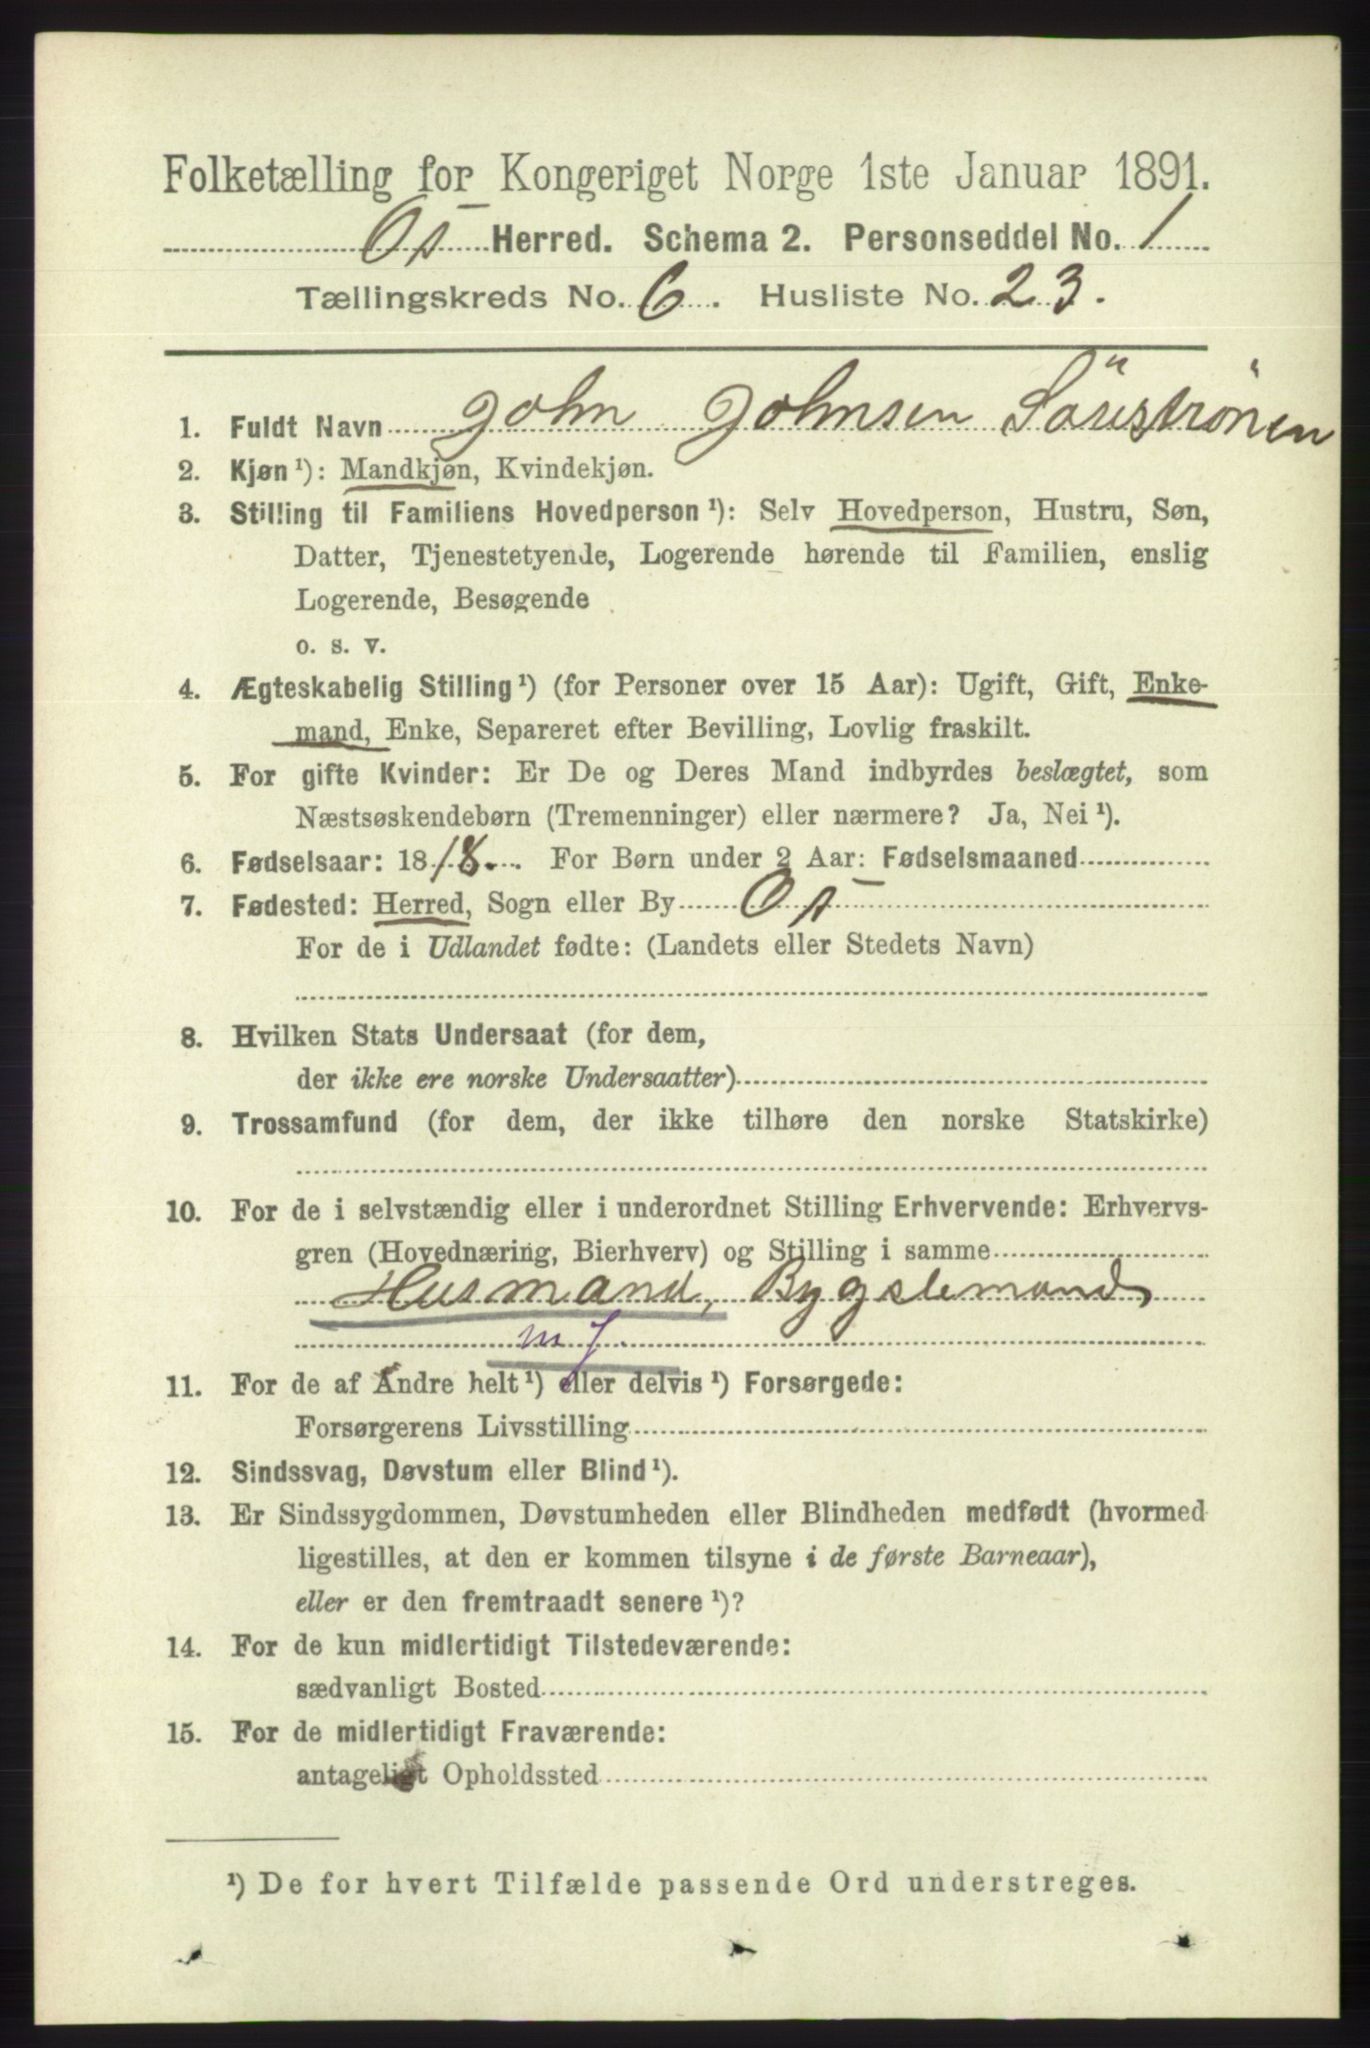 Folketælling for Kongeriget Norge 1ste Januar 1891.
Os Herred. Schema 2. Personseddel No. 1
Tællingskreds No. 6. Husliste No. 23.
1. Fuldt Navn John Johnsen
2. Kjøn¹): Mandkjøn, Kvindekjøn.
3. Stilling til Familiens Hovedperson¹): Selv Hovedperson, Hustru, Søn,
Datter, Tjenestetyende, Logerende hørende til Familien, enslig
Logerende, Besøgende
o. s. v.
4. Ægteskabelig Stilling¹) (for Personer over 15 Aar): Ugift, Gift, Enke-
mand, Enke, Separeret efter Bevilling, Lovlig fraskilt.
5. For gifte Kvinder: Er De og Deres Mand indbyrdes beslægtet, som
Næstsøskendebørn (Tremenninger) eller nærmere? Ja, Nei¹).
6. Fødselsaar: 1818. For Børn under 2 Aar: Fødselsmaaned
7. Fødested: Herred, Sogn eller By Os
For de i Udlandet fødte: (Landets eller Stedets Navn)
8. Hvilken Stats Undersaat (for dem,
der ikke ere norske Undersaatter)
9. Trossamfund (for dem, der ikke tilhøre den norske Statskirke)
10. For de i selvstændig eller i underordnet Stilling Erhvervende: Erhvervs-
gren (Hovednæring, Bierhverv) og Stilling i samme
Husmand, Bygslemand
m j.
11. For de af Andre helt¹) eller delvis¹) Forsørgede:
Forsørgerens Livsstilling
12. Sindssvag, Døvstum eller Blind¹).
13. Er Sindssygdommen, Døvstumheden eller Blindheden medfødt (hvormed
ligestilles, at den er kommen tilsyne i de første Barneaar),
eller er den fremtraadt senere¹)?
14. For de kun midlertidigt Tilstedeværende:
sædvanligt Bosted
15. For de midlertidigt Fraværende:
antageligt Opholdssted
¹) De for hvert Tilfælde passende Ord understreges.